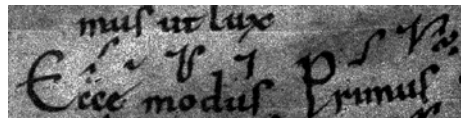 mus ut lux
Ecce modus Primus